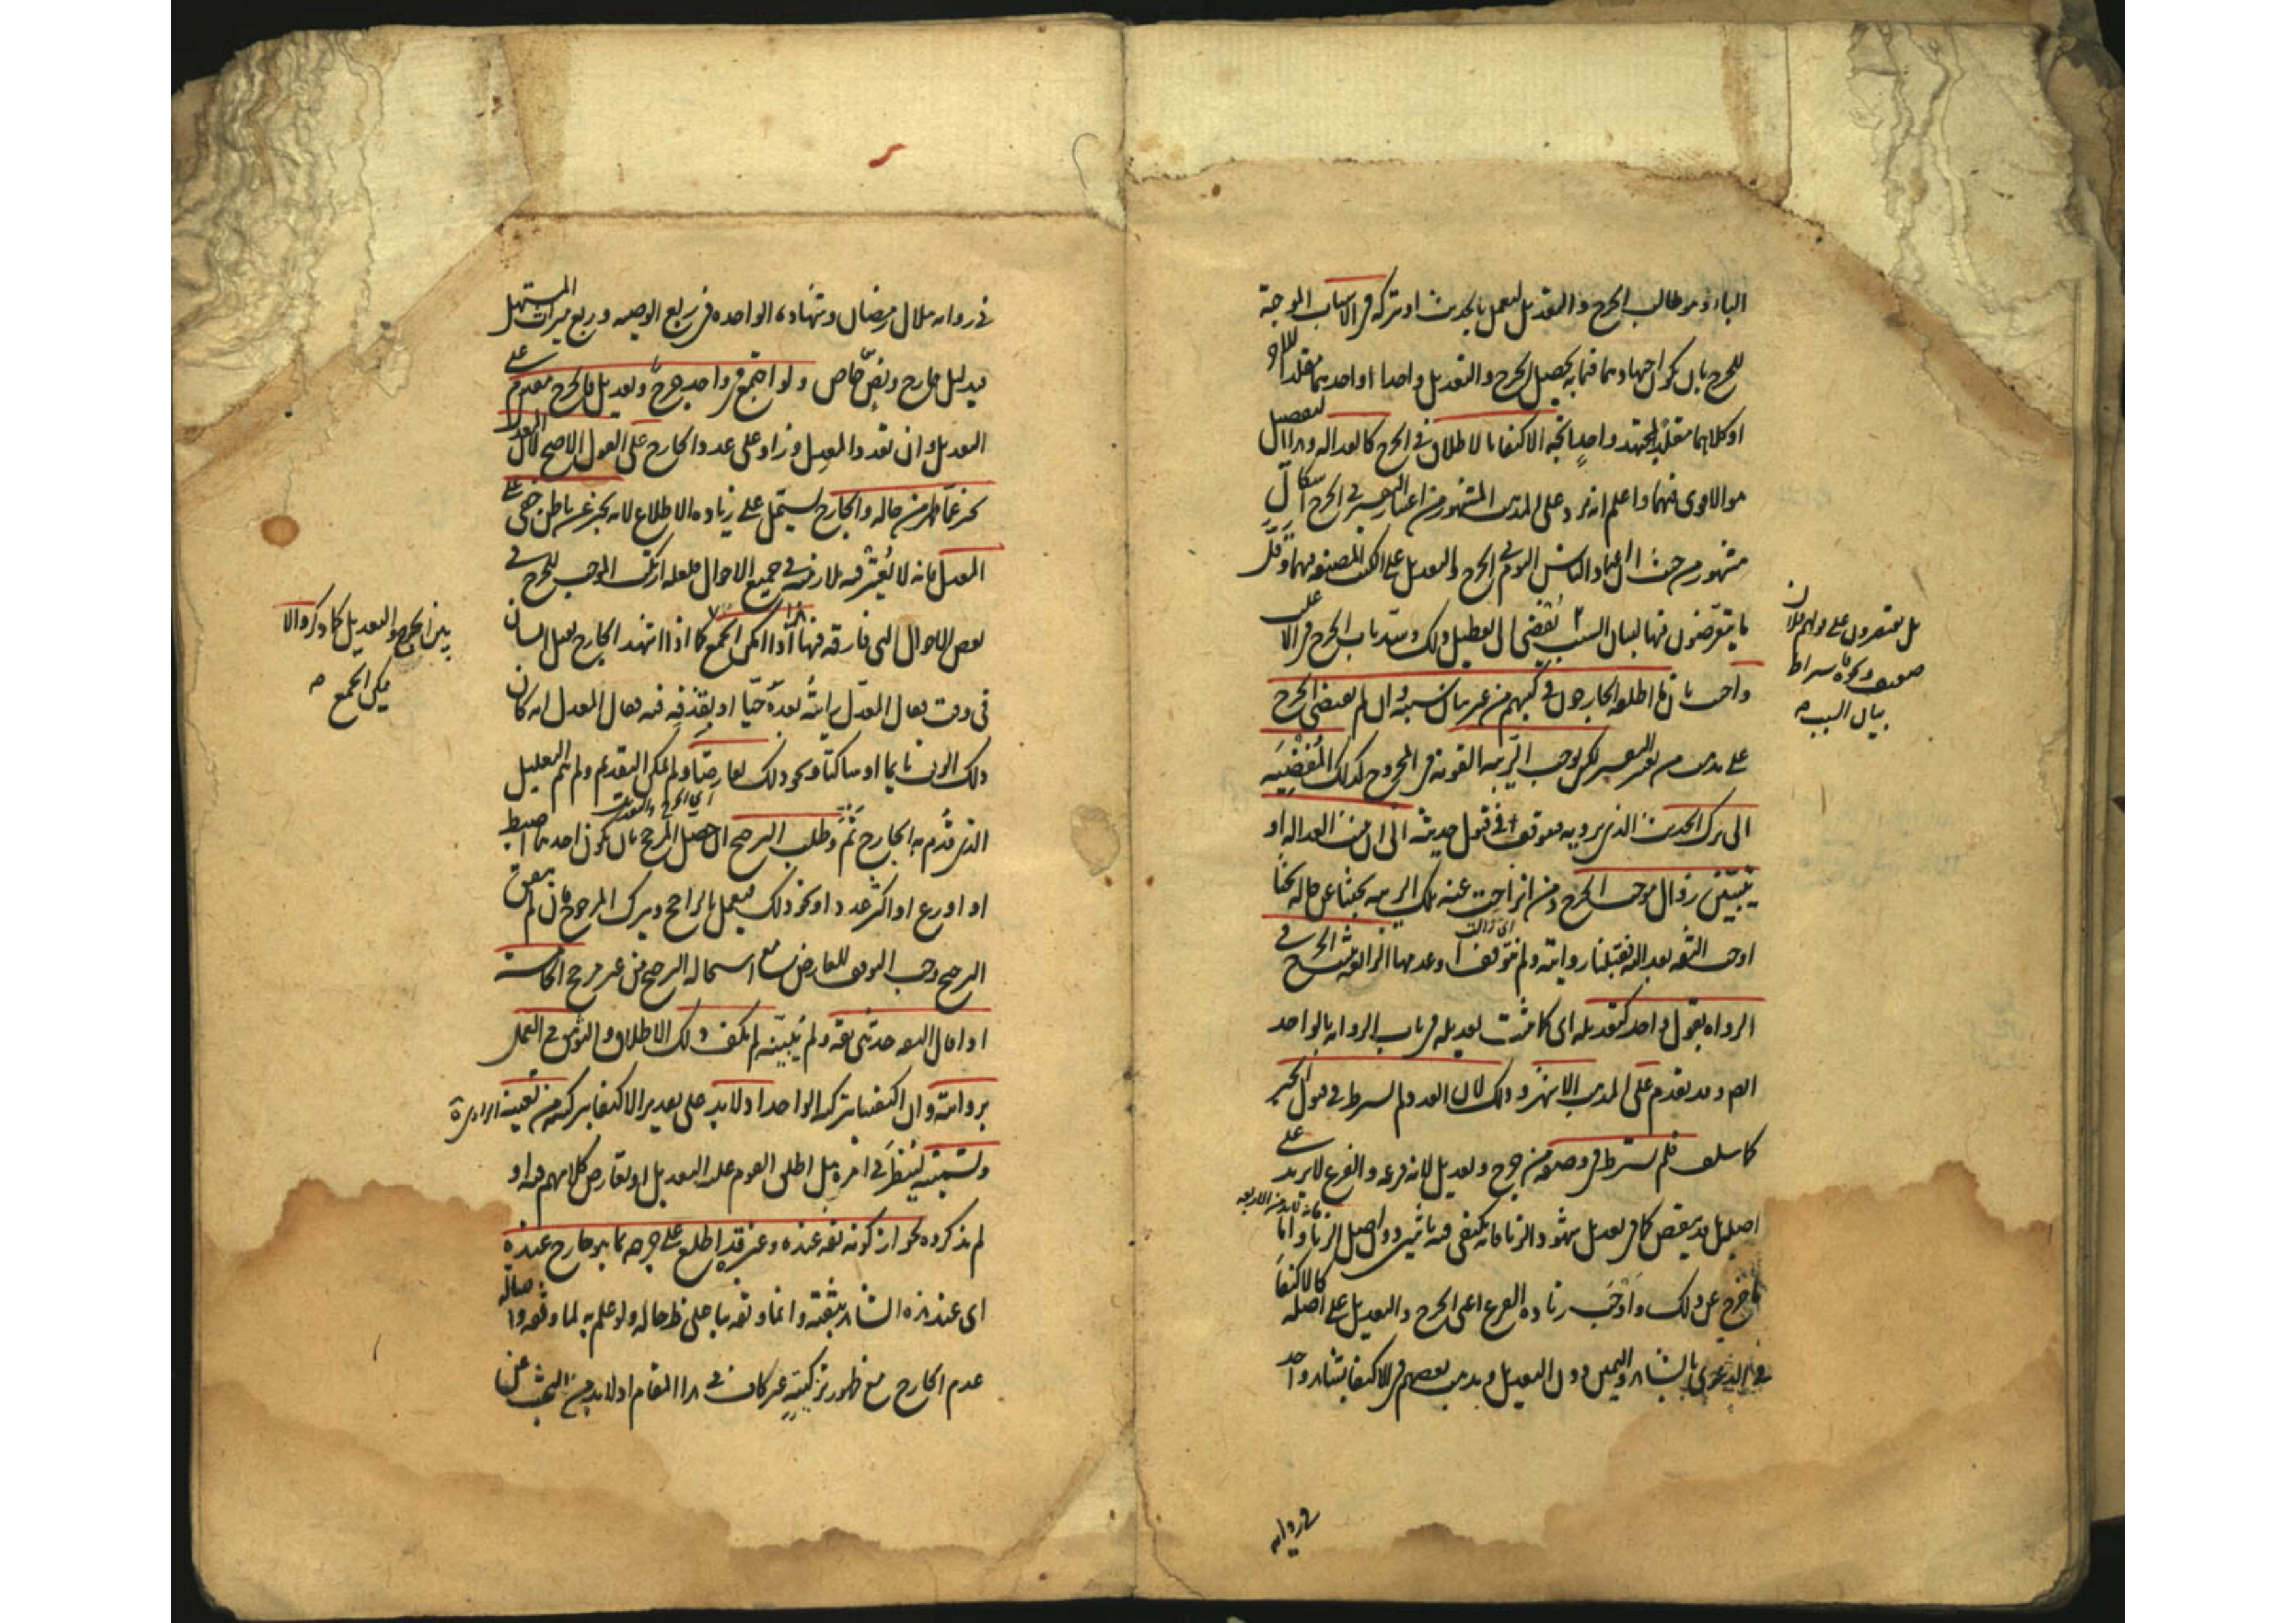 للجرح بأن يكون اجتهادهما فيما به يحصل الجرح والتعديل واحدا او احدهما مقلدا للاخر
او كلاهما مقلدا لمجتهد واحد اتجه الاكتفاء بالاطلاق في الجرح كالعدالة والتفصيل
هو الاقوى فيهما واعلم انه يرد على المذهب المشهور من اعتبار التفسير في الجرح اشكال
مشهور من حيث ان اعتماد الناس اليوم في الجرح والتعديل على الكتب المصنفة فيهما وقل
ما يتعرضون فيها لبيان السبب يفضي الى تعطيل ذلك وسد باب الجرح في الاغلب
واجيب بان ما اطلقه الجارحون في كتبهم من غير بيان سببه وان لم يقتض الجرح
على مذهب من يعتبر التفسير لكن يوجب الريبة القوية في المجروح كذلك المفضية
الى ترك الحديث الذي يرويه فيتوقف في قبول حديثه الى ان تثبت العدالة او
يتبين زوال موجب الجرح ومن انزاحت عنه تلك الريبة بحثنا عن حاله بحثا
اي زالت
اوجب الثقة بعدالته فقبلنا روايته ولم نتوقف او عدمها الرابعة يثبت الجرح في
الرواة بقول واحد كتعديله اي كما يثبت تعديله في باب الرواية بالواحد
على المذهب الاشهر وذلك لان العدد لم يشترط في قبول الخبر
كما سلف فلم يشترط في وصفه من جرح وتعديل لانه فرعه والفرع لا يزيد على
اصله بل قد ينقص كما في تعديل شهود الزنا فانه يكتفى فيه باثنين دون اصل الزنا واما
ما خرج عن ذلك واوجب زيادة الفرع اعني الجرح والتعديل على اصله كالاكتفاء
في الدعوى بالشاهد واليمين دون التعديل وبعضهم في الاكتفاء بشاهد واحد
في رواية
بل يقتصرون على قولهم فلان
ضعيف ونحوه فاشتراط
بيان السبب
في رواية هلال رمضان وشهادة الواحدة في ربع الوصية وربع ميراث المستهل
بدليل خارج ونص خاص ولو اجتمع في واحد جرح وتعديل فالجرح مقدم على
التعديل وان تعدد المعدل وزاد على عدد الجارح على القول الاصح لان المعدل
مخبر عما ظهر من حاله والجارح يشتمل على زيادة الاطلاع لانه يخبر عن باطن خفي على
المعدل فانه لا يعتبر فيه ملازمته في جميع الاحوال فلعله ارتكب الموجب للجرح في
بعض الاحوال التي فارقه فيها هذا اذا امكن الجمع كما اذا شهد الجارح بقتل انسان
في وقت فقال المعدل رايته بعده حيا او يقذفه فيه فقال المعدل انه كان
ذلك الوقت نائما او ساكتا ونحو ذلك تعارضا ولم يمكن التقديم ولم يتم التعليل
الذي قدم به الجارح ثم وطلب الترجيح ان حصل المرجح بان يكون احدهما اضبط
او اورع او اكثر عددا ونحو ذلك فيعمل بالراجح ويترك المرجوح فان لم يتفق
الترجيح وجب التوقف للتعارض مع استحالة الترجيح من غير مرجح الخامسة
اذا قال الثقة حدثني ثقة ولم يبينه لم يكف ذلك الاطلاق والتوثيق في العمل
بروايته وان اكتفينا بتزكية الواحد اذ لا بد على تقدير الاكتفاء بتزكيته من تعيينه
وتسميته لينظر في امره هل اطلق القوم عليه التعديل او تعارض كلامهم فيه او
لم يذكروه لجواز كونه ثقة عنده وغيره قد اطلع على جرحه بما هو جارح عنده
اي عند هذا الشاهد بثقته وانما وثقه بناء على ظاهر حاله ولو علم به لما وثقه واصالة
عدم الجارح مع ظهور تزكيته غير كاف في هذا المقام اذ لا بد من البحث عن
بين الجرح والتعديل كما ذكر والا
يمكن الجمع